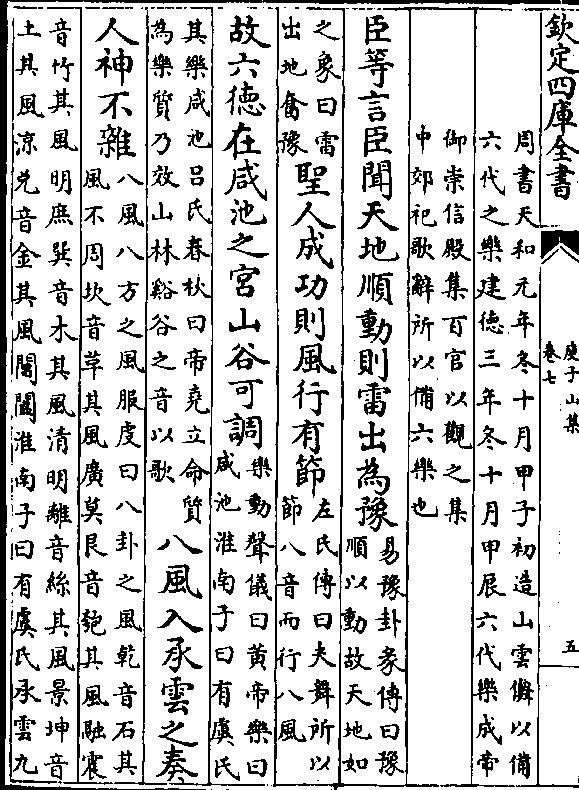 欽定四庫全書
庾子山集
卷七
五
周書天和元年冬十月甲子初造山雲儛以備
六代之樂建德三年冬十月甲辰六代樂成帝
御崇信殿集百官以觀之集
中郊祀歌辭所以備六樂也
臣等言臣聞天地順動則雷出為豫易豫卦彖傳曰豫
順以動故天地如
之象曰雷
出地奮豫聖人成功則風行有節左氏傳曰夫舞所以
節八音而行八風
故六德在咸池之宮山谷可調樂動聲儀曰黃帝樂曰
咸池淮南子曰有虞氏
其樂咸池吕氏春秋曰帝堯立命質
為樂質乃效山林谿谷之音以歌八風入承雲之奏
人神不雜八風八方之風服虔曰八卦之風乾音石其
風不周坎音草其風廣莫艮音匏其風融震
音竹其風明庶巽音木其風清明離音絲其風景坤音
土其風凉兊音金其風閶闔淮南子曰有虞氏承雲九